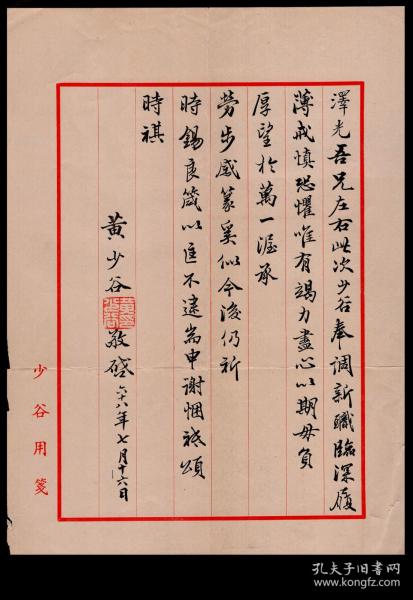 澤光吾兄左右此次少谷奉調新職臨深履
薄戒慎恐懼唯有竭力盡心以期毋負
厚望於萬一渥承
勞步感篆奚似今後仍祈
時錫良箴以匡不逮耑申謝悃祗頌
時祺
黃少谷敬啟六十八年七月十六日
少谷用箋
孔夫子旧书网
www.kongfz.com